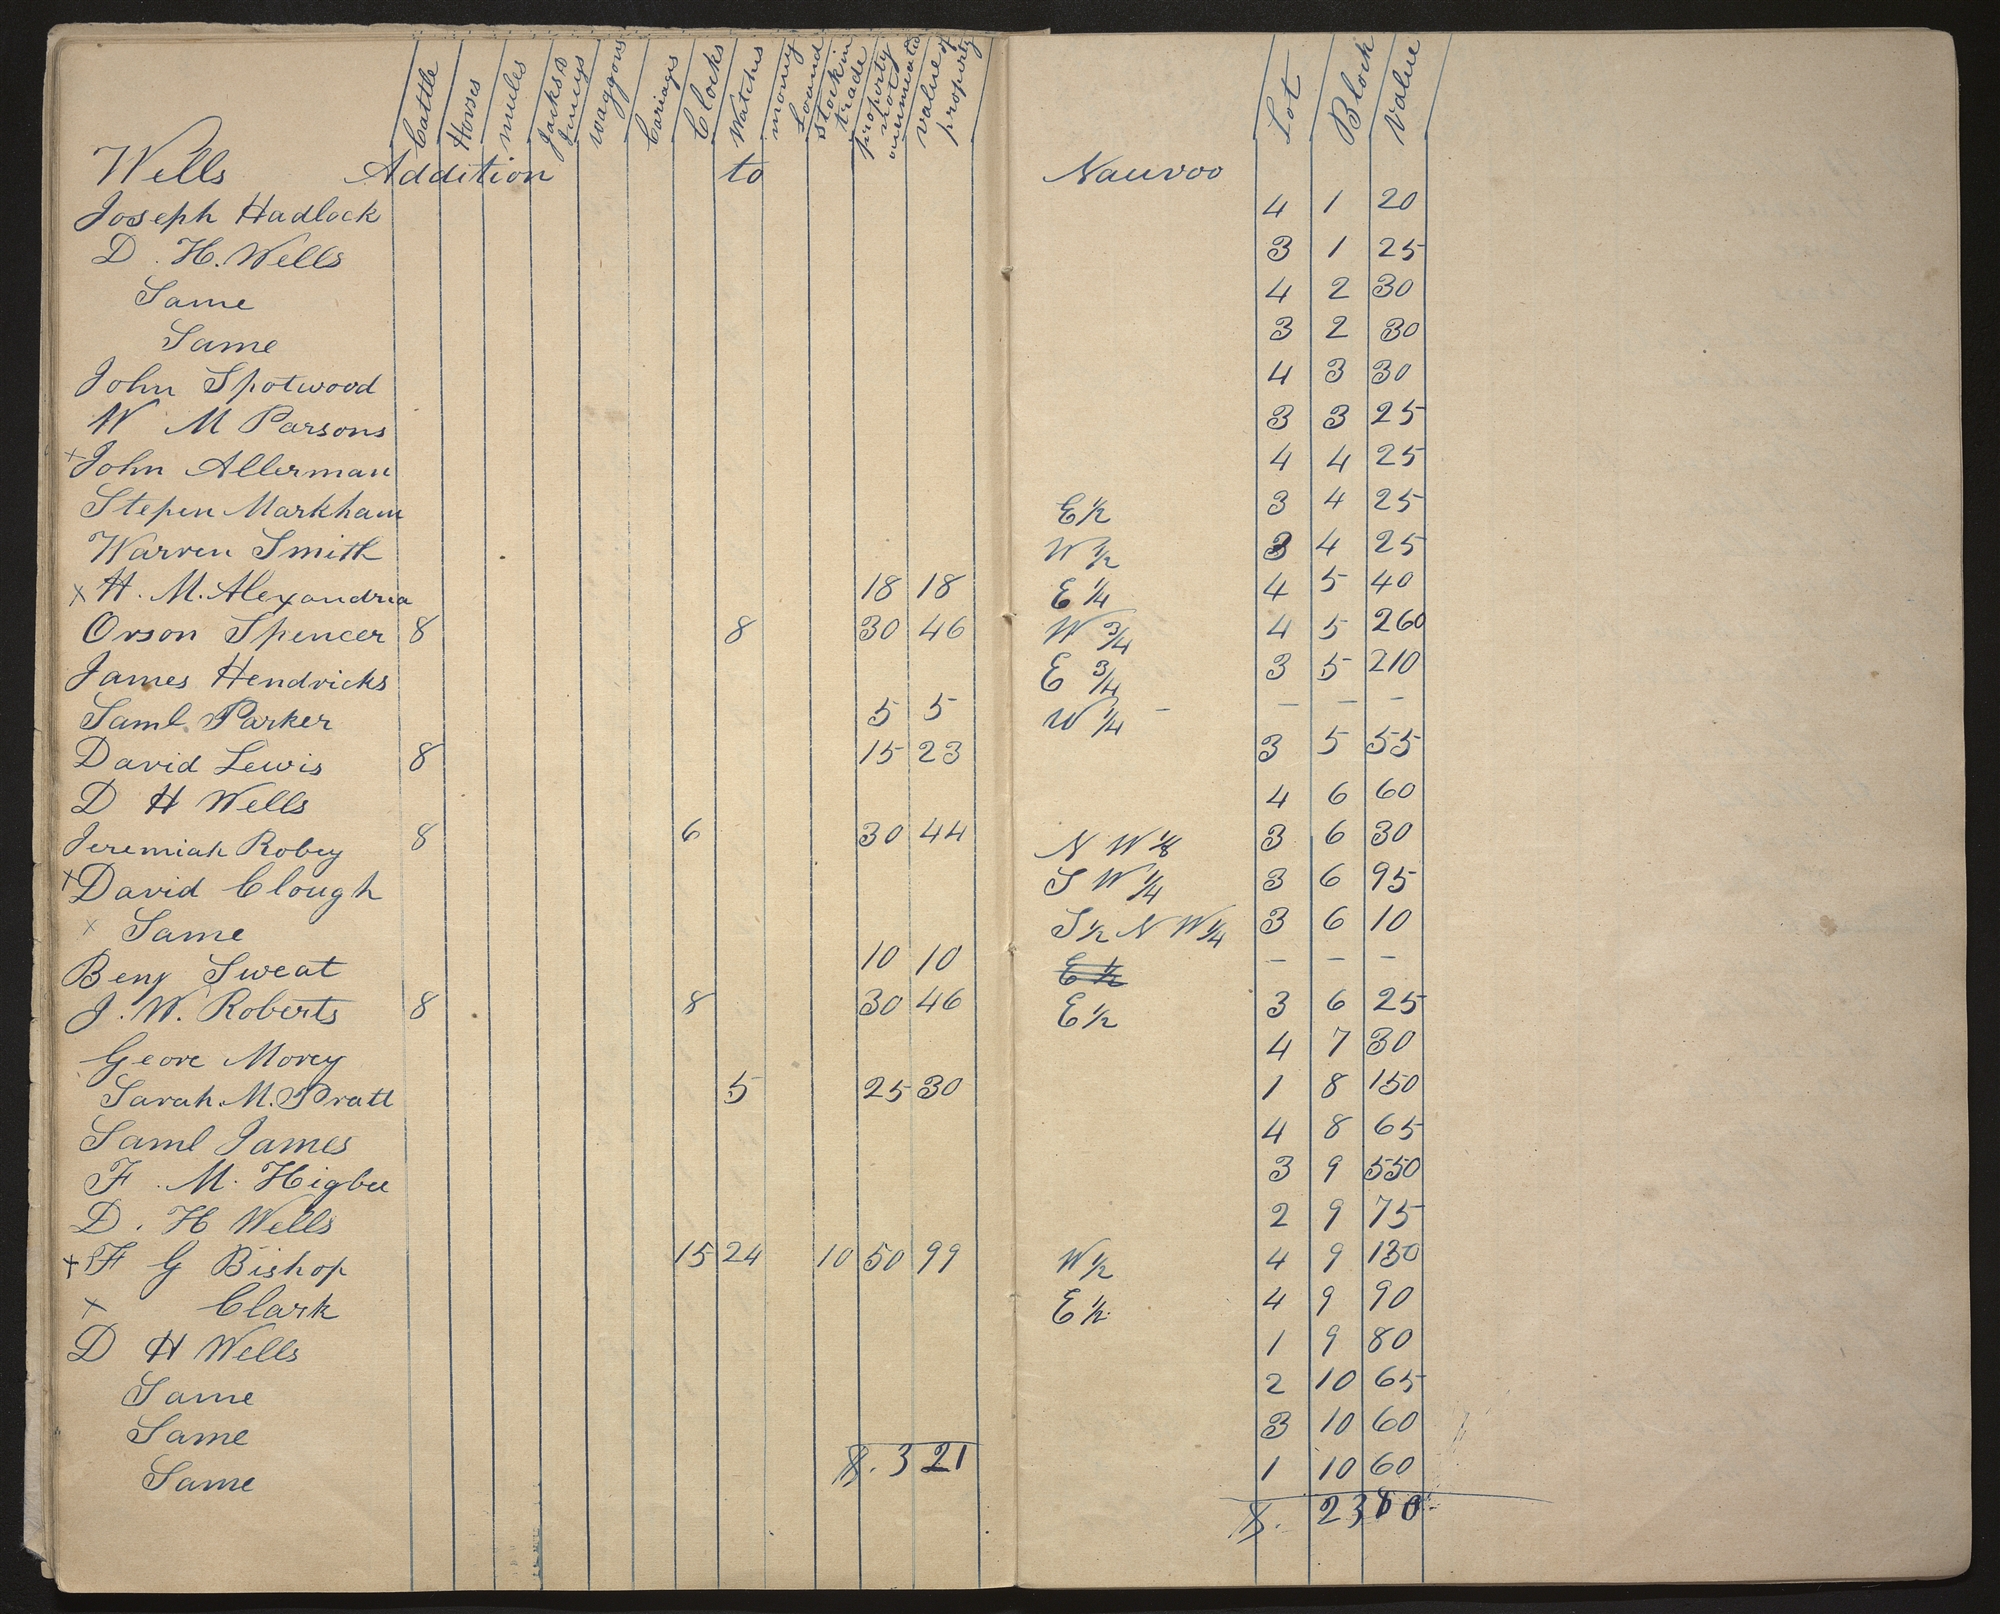 Cattle Horses mules Jacks & Jennys waggons Cariages Clocks Watches mony Loand stock in trade property not enumerated value of property Lot Block Value
Wells Addition to Nauvoo
Joseph Hadlock 4 1 20
D. H. Wells 3 1 25
Same 4 2 30
Same 3 2 30
John Spotwood 4 3 30
W M Parsons 3 3 25
x John Allerman 4 4 25
Stepen Markham E 1/2 3 4 25
Warren Smith W 1/2 3 4 25
x H. M. Alexandria 18 18 E 1/4 4 5 40
Orson Spencer 8 8 30 46 W 3/4 4 5 260
James Hendricks E 3/4 3 5 210
Saml Parker 5 5 W 1/4 - - - -
David Lewis 8 15 23 3 5 55
D H Wells 4 6 60
Jeremiah Robey 8 6 30 44 N W 1/8 3 6 30
x David Clough S W 1/4 3 6 95
x Same S 1/2 N W 1/4 3 6 10
Benj Sweat 10 10 E 1/2 - - -
J. W. Roberts 8 8 30 46 E 1/2 3 6 25
Geore Morey 4 7 30
Sarah M. Pratt 5 25 30 1 8 150
Saml James 4 8 65
F. M. Higbee 3 9 550
D. H Wells 2 9 75
x F G Bishop 15 24 10 50 99 W 1/2 4 9 130
x Clark E 1/2 4 9 90
D H Wells 1 9 80
Same 2 10 65
Same 3 10 60
Same 1 10 60
$. 321
$. 2380